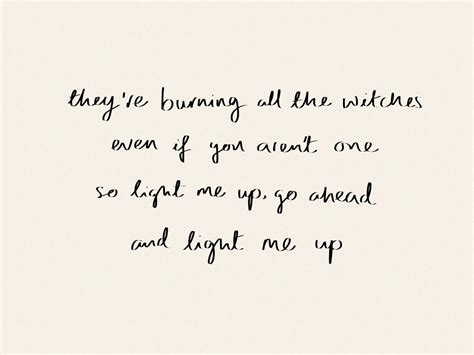 they're burning all the witches
even if you aren't one
so light me up, go ahead
and light me up